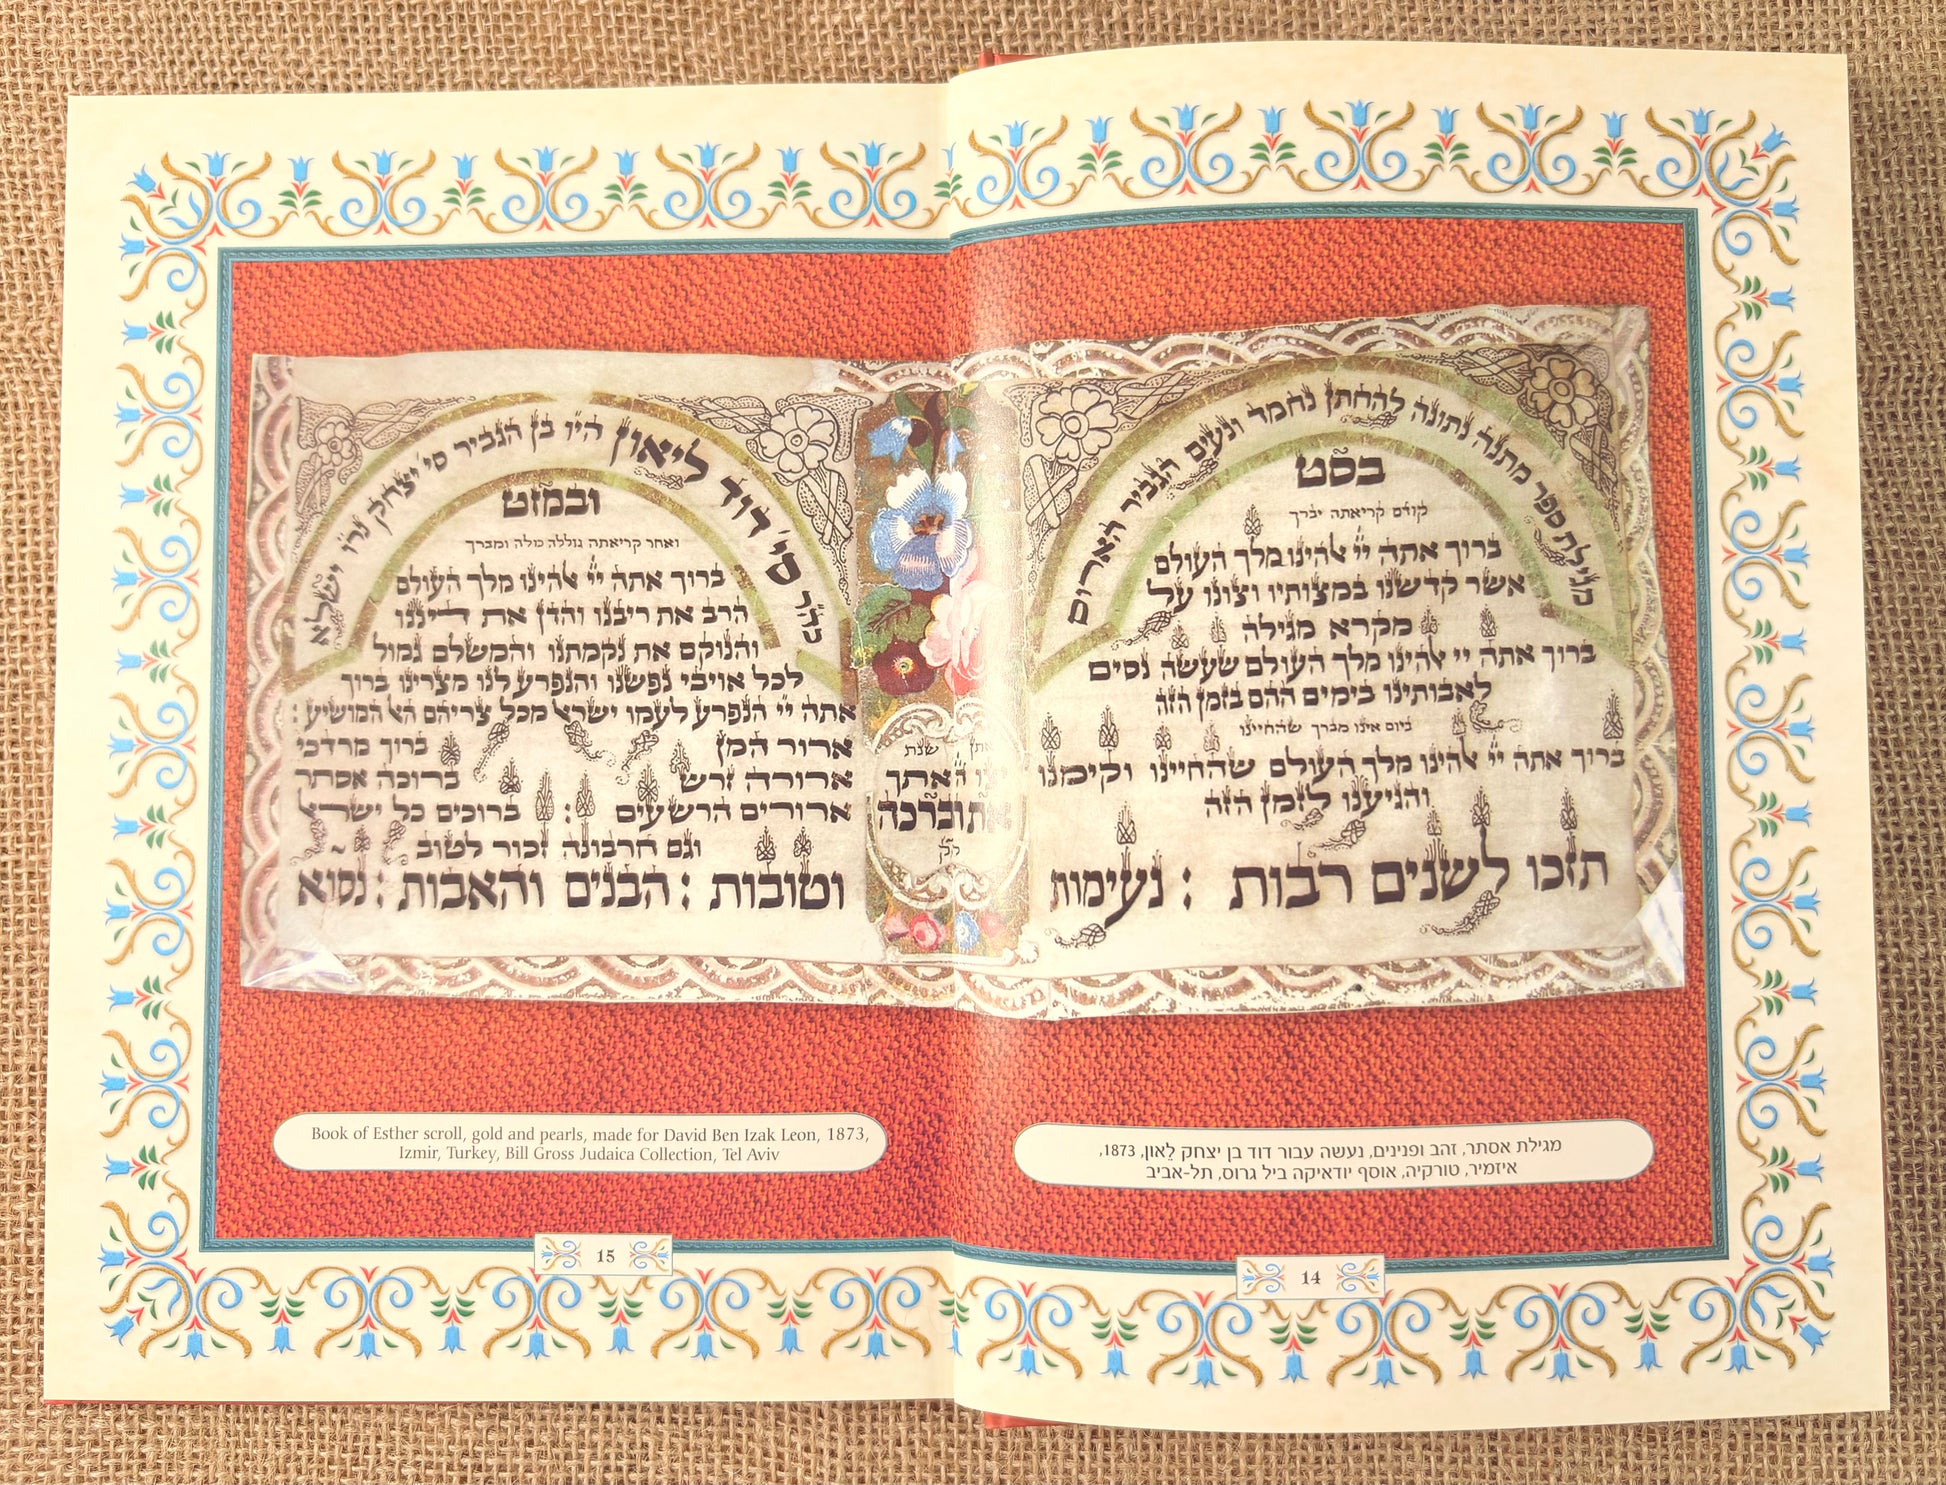 מגילת ספר מתנה נתונה להחתן נחמד ונעים הגביר האדוים
בסט
קודם קריאתה יברך
ברוך אתה יי אלהינו מלך העולם
אשר קדשנו במצותיו וצונו על
מקרא מגילה
ברוך אתה יי אלהינו מלך העולם שעשה נסים
לאבותינו בימים ההם בזמן הזה
ביום אינו מברך שהחיינו
ברוך אתה יי אלהינו מלך העולם שהחיינו וקיימנו
והגיענו לזמן הזה
תזכו לשנים רבות : נעימות
מגילת אסתר, זהב ופנינים, נעשה עבור דוד בן יצחק לֵאון, 1873,
איזמיר, טורקיה, אוסף יודאיקה ביל גרוס, תל-אביב
14
שנת
האתך
וברכה
לק
כה"ר סי' דוד ליאון היו בן הגביר סי' יצחק נרו ישלא
ובמוט
ואחר קריאתה גוללה כולה ומברך
ברוך אתה יי אלהינו מלך העולם
הרב את ריבנו והדן את דיננו
והנוקם את נקמתנו והמשלם גמול
לכל אויבי נפשנו והנפרע לנו מצרינו ברוך
אתה יי הנפרע לעמו ישראל מכל צריהם האל המושיע :
ארור המן ברוך מרדכי
ארורה זרש ברוכה אסתר
ארורים הרשעים : ברוכים כל ישראל
וגם חרבונה זכור לטוב
וטובות : הבנים והאבות : נסוא
Book of Esther scroll, gold and pearls, made for David Ben Izak Leon, 1873,
Izmir, Turkey, Bill Gross Judaica Collection, Tel Aviv
15